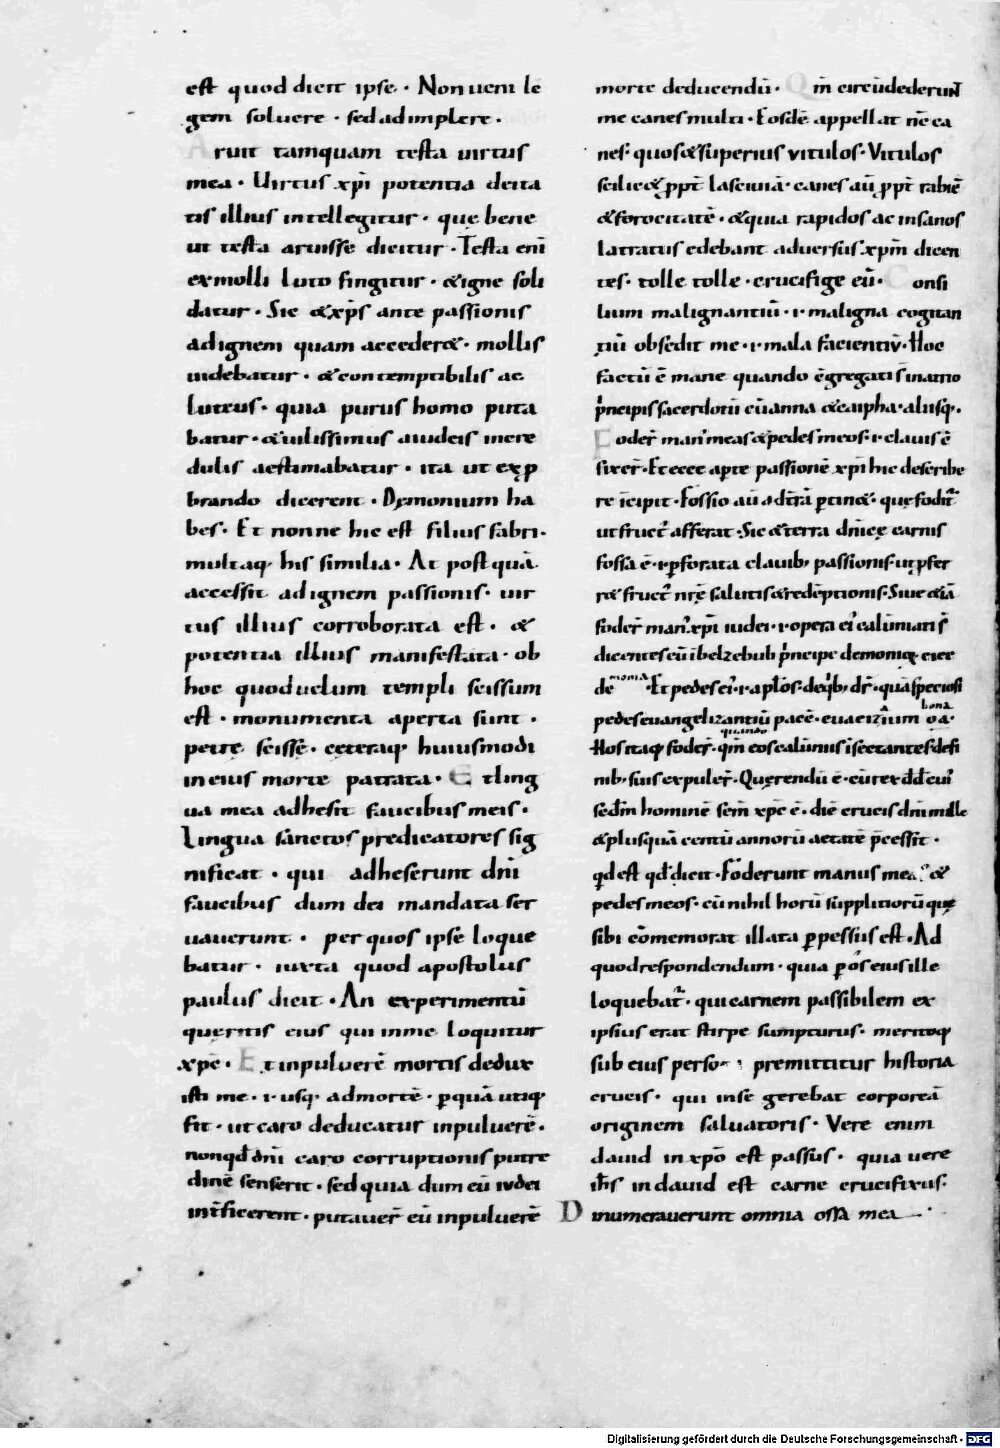 est quod dicit ipse · Non ueni le
gem soluere · sed adimplere ·
Aruit tamquam testa uirtus
mea · Uirtus xp̄i potentia deita
tis illius intellegitur · quę bene
ut testa aruisse dicitur · Testa eni̅
ex molli luto fingitur · & igne soli
datur · Sic & xp̄s ante passionis
ad ignem quam acceder& · mollis
uidebatur · & contemptibilis ac
luteus · quia purus homo puta
batur · & uilissimus a iudeis incre
dulis aestimabatur · ita ut exp̱
brando dicerent · Demonium ha
bes · Et nonne hic est filius fabri ·
multaq; his similia · At postquā
accessit ad ignem passionis · uir
tus illius corroborata est · &
potentia illius manifestata · ob
hoc quod uelum templi scissum
est · monumenta aperta sunt ·
petrę scissę · ceteraq; huiusmodi
in eius morte patrata · Et ling
ua mea adhesit faucibus meis ·
Lingua sanctos predicatores sig
nificat · qui adheserunt dn̄i
faucibus dum dei mandata ser
uauerunt · per quos ipse loque
batur · iuxta quod apostolus
paulus dicit · An experimentū
queritis eius qui in me loquitur
xp̄c · Et in puluerē mortis dedux
isti me · i · usq; ad mortē · p̱quā utiq;
fit · ut caro deducatur in puluerē ·
non qd̄ dn̄i caro corruptionis putre
dinē senserit · sed quia dum eū iudei
int̄ficerent · putauer̄ eū in puluerē
morte deducendū · Qm̄ circūdederunt
me canes multi · Eosdē appellat nc̄ ca
nes · quos & superius vitulos · Vitulos
scilic& ꝓpt̄ lasciuiā · canes aū ꝓpt̄ rabiē
& ferocitatē · & quia rapidos ac insanos
latratus edebant aduersus xp̄m dicen
tes · tolle tolle · crucifige eū · Consi
lium malignantiū · i · maligna cogitan
tiū obsedit me · i · mala facientiū · Hoc
factū ē mane quando c̄gregati s̄ in atrio
p̄ncipis sacerdotū cū anna & caipha · aliisq; ·
Foder̄ man' meas & pedes meos · i · clauis c̄
fixer̄ · Et ecce ap̱te passionē xp̄i hic describe
re īcipit · Fossio aū ad t̄rā p̱tin& · quę fodit̄
ut fruct' afferat · Sic & terra dn̄icę carnis
fossa ē · i · p̱forata clauib; passionis · ut ꝓfer
r& fruct' nr̄ę salutis & redēptionis · Siue & iā
foder̄ man' xp̄i iudei · i · opera ei' calūniati s̄
dicentes eū ī belzebub p̄ncipe demonioꝝ eice
re demonia · Et pedes ei' · i · ap̄los · de qb; dr̄ · quā speciosi
pedes euangelizantiū pacē · euāgelizantium bona ·
Hos itaq; foder̄ · qm̄ eos calūniis īsectantes de fi
nib; suis expuler̄ · Querendū ē · cū rex dd̄ cui'
sedm̄ hominē sem̄ xp̄c ē · diē crucis dn̄i mille
& plusquā centū annorū aetatē p̄cessit ·
qd̄ est qd̄ dicit · Foderunt manus meas · &
pedes meos · cū nihil horū suppliciorū quę
sibi cōmemorat illata p̱pessus est · Ad
quod respondendum · quia p̱ os eius ille
loquebat̄ · qui carnem passibilem ex
ipsius erat stirpe sumpturus · meritoq;
sub eius persona premittitur historia
crucis · qui in se gerebat corporeā
originem saluatoris · Vere enim
dauid in xp̄o est passus · quia uere
ih̄s in dauid est carne crucifixus ·
Dinumerauerunt omnia ossa mea ·
Digitalisierung gefördert durch die Deutsche Forschungsgemeinschaft - DFG